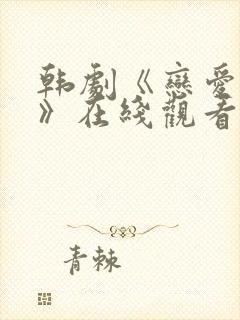 韩劇《戀愛
》在綫觀看
青棘